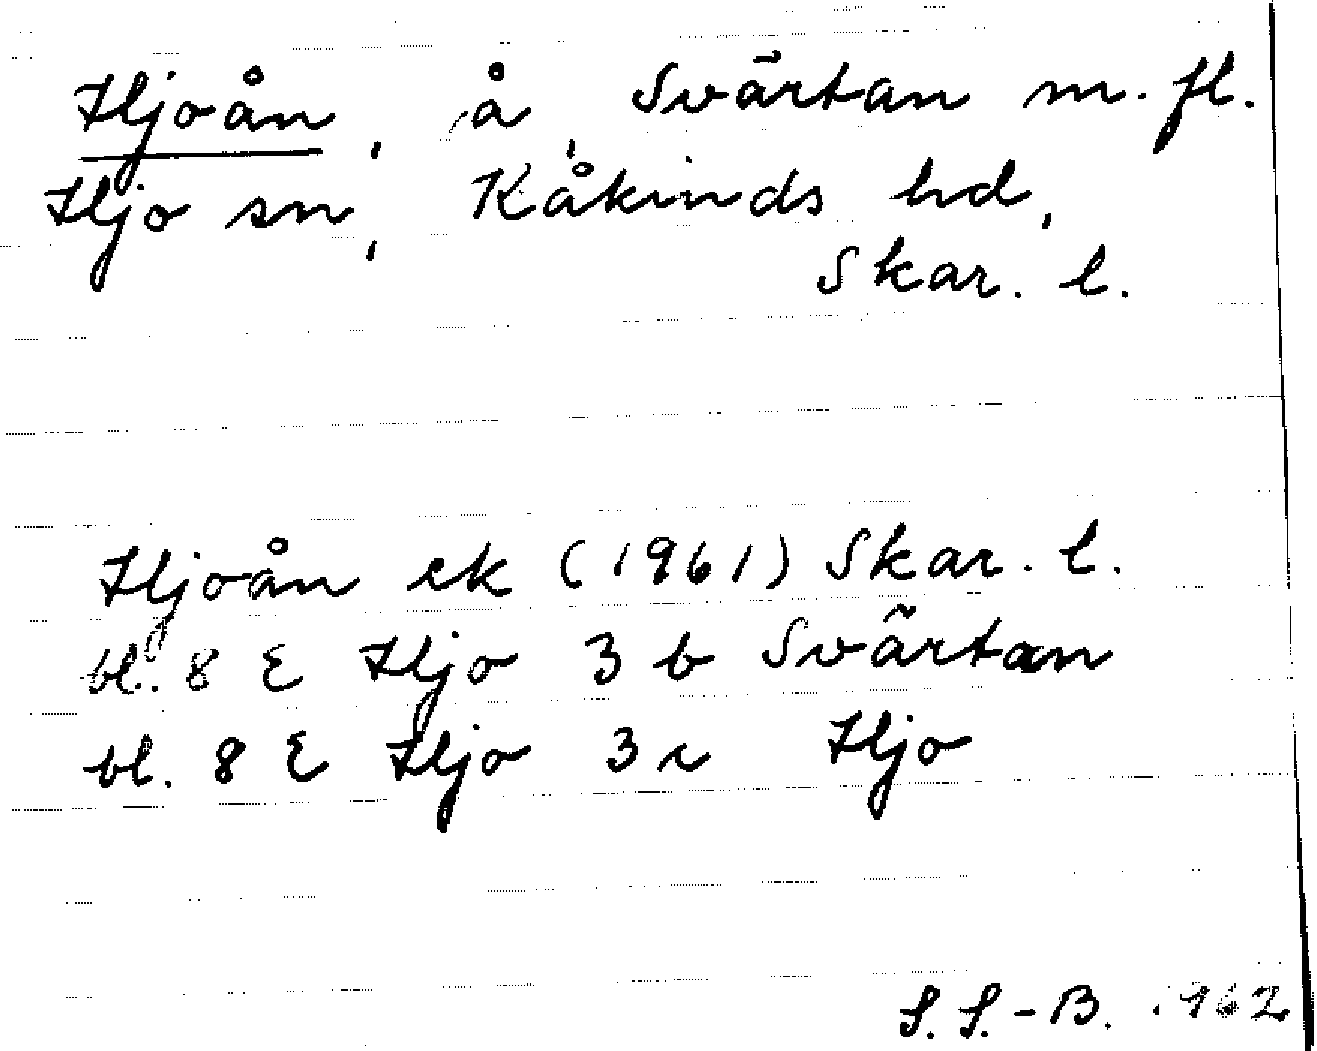 Hjoån, å, Svärtan m. fl.
Hjo sn, Kåkinds hd,
Skar. l.
Hjoån ek (1961) Skar. l.
bl. 8 E Hjo 3 b Svärtan
bl. 8 E Hjo 3 c Hjo
S. S.-B. 1962